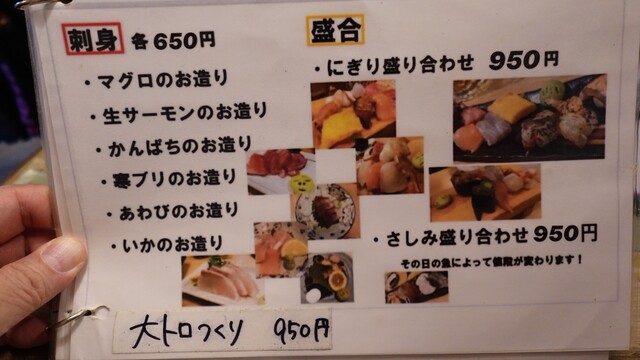 刺身 各650円
・マグロのお造り
・生サーモンのお造り
・かんぱちのお造り
・寒ブリのお造り
・あわびのお造り
・いかのお造り
大トロつくり 950円
盛合
・にぎり盛り合わせ 950円
・さしみ盛り合わせ 950円
その日の魚によって値段が変わります！